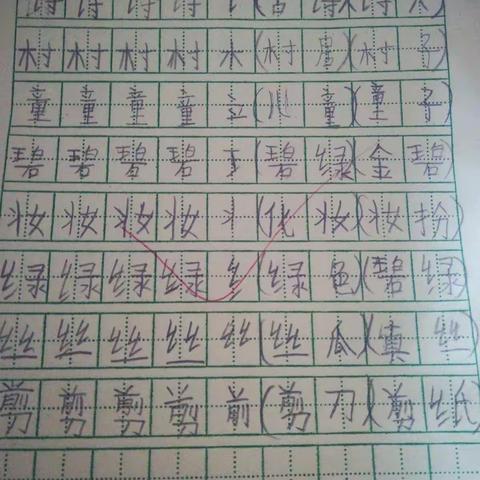 诗诗诗诗讠(古诗)(诗人)
村村村村木(村居)(村子)
童童童童立(儿童)(童子)
碧碧碧碧王(碧绿)(金碧)
妆妆妆妆丬(化妆)(妆扮)
绿绿绿绿纟(绿色)(碧绿)
丝丝丝丝丝(丝瓜)(真丝)
剪剪剪剪前(剪刀)(剪纸)